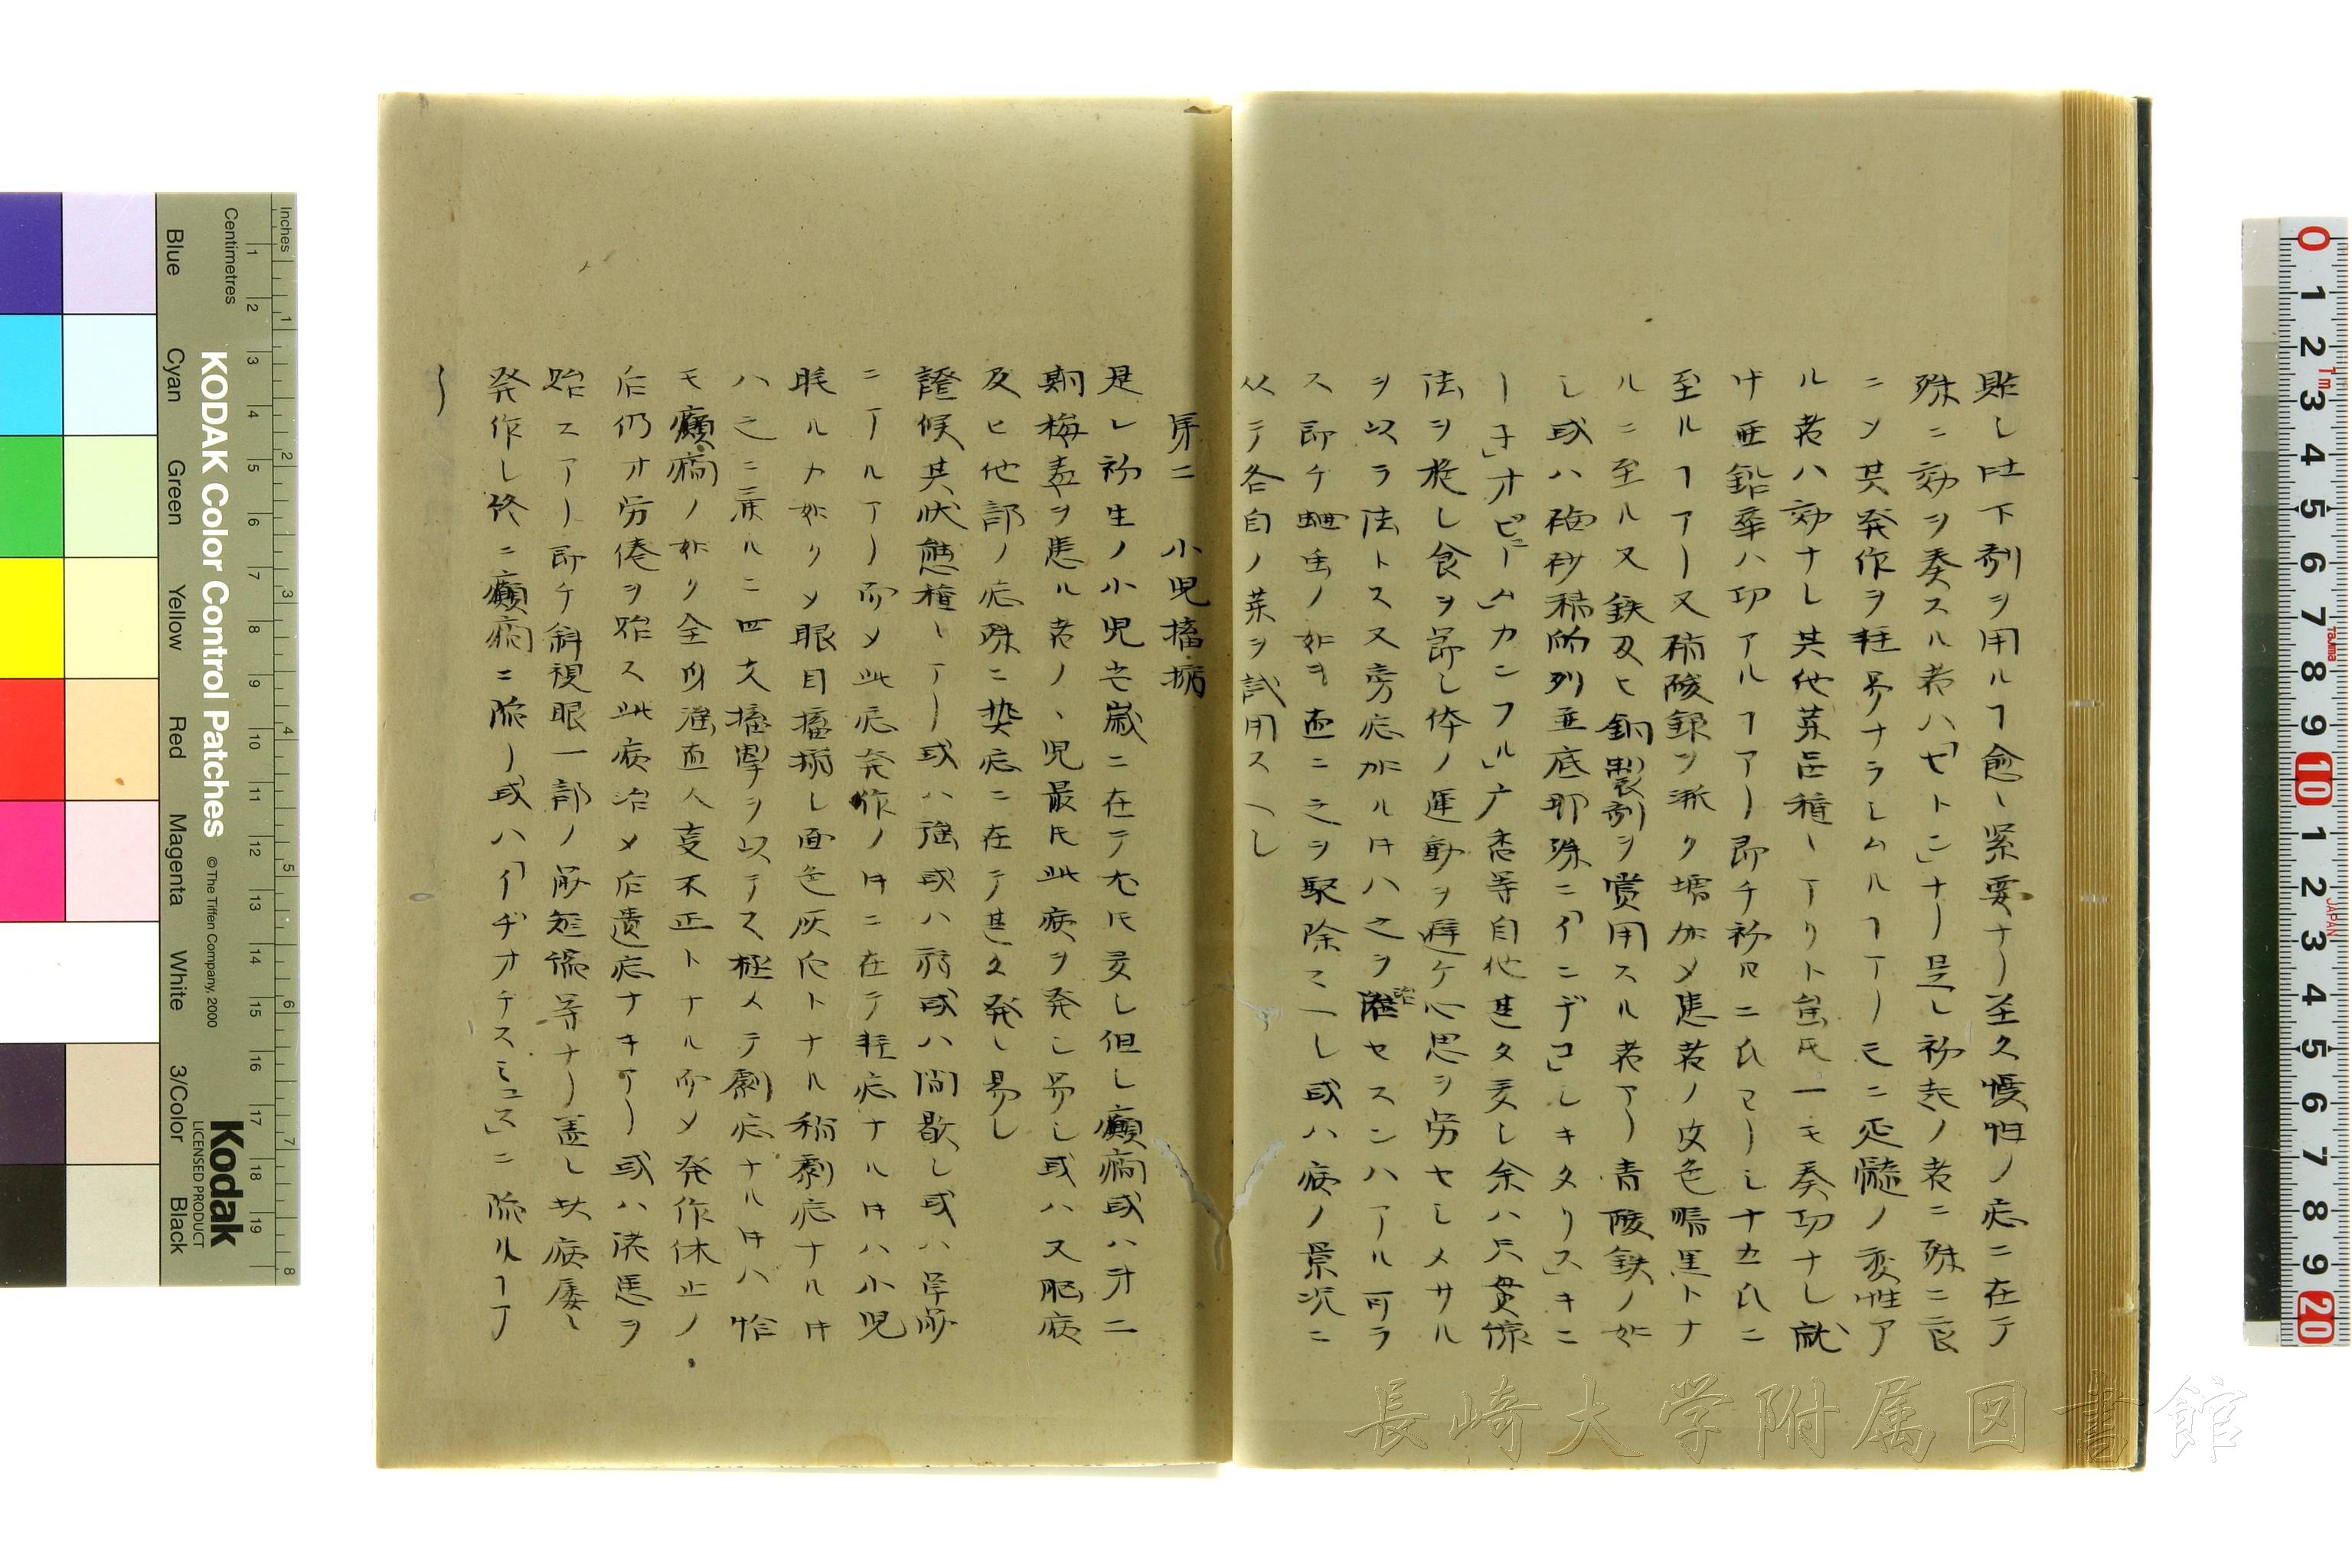 貼シ吐下剤ヲ用ルヿ愈〻緊要ナリ至久慢性ノ症ニ在テ
殊ニ効ヲ奏スル者ハ「セトン」ナリ是レ初起ノ者ニ殊ニ良
ニメ其発作ヲ軽易ナラシムルヿアリ
ル者ハ効ナシ其他薬品種〻アリト雖氏一モ奏功ナシ就
中亜鉛華ハ功アルヿアリ即チ初
至ルヿアリ又硝酸銀ヲ漸ク増加メ患者ノ皮色暗黒トナ
ルニ至ル又鉄及ヒ銅製剤ヲ賞用スル者アリ青酸鉄ノ如
シ或ハ砒砂
「オピーム」カンフル」
法ヲ施シ食ヲ節シ体ノ運動ヲ避ケ心思ヲ労セシメサル
ヲ以ラ法トス又旁症加ルㇳキハ之ヲ治セスンハアル可ラ
ス即チ蛔虫ノ如キ直ニ之ヲ駆除スヘシ或ハ病ノ景況ニ
从テ各自ノ薬ヲ試用スヘシ
第二 小児搐搦
是レ初生ノ小児壱歳ニ在テ尤氏多シ但シ癲癇或ハ
期梅毒ヲ患ル者ノ、児最氏此病ヲ発シ易シ或ハ又脳病
及ヒ他部ノ症殊ニ熱症ニ在テ甚タ発シ易シ
證候其状態種〻アリ或ハ強或ハ弱或ハ間歇シ或ハ単
ニアルアリ而メ此症発作ノㇳキニ在テ軽症ナルㇳキハ小児
眠ルカ如クメ眼目搐搦シ面色灰白トナル稍劇症ナルㇳキ
ハ之ニ兼ルニ四支搐掣ヲ以テス極メテ劇症ナルㇳキハ恰
モ癲癇ノ如ク全身強直人事不正トナル而メ発作休止ノ
后仍オ労倦ヲ貽ス此病治メ后遺症ナキアリ或ハ
貽スアリ即チ斜視眼一部ノ筋短縮等ナリ蓋シ此病屡〻
発作シ終ニ癲癇ニ陥リ或ハ「イヂオチスミュス」ニ陥ルヿア
リ
Inches
Centimetres
KODAK Color Control Patches
© The Tiffen Company, 2000
Kodak
LICENSED PRODUCT
Blue
Cyan
Green
Yellow
Red
Magenta
White
3/Color
Black
長崎大学附属図書館